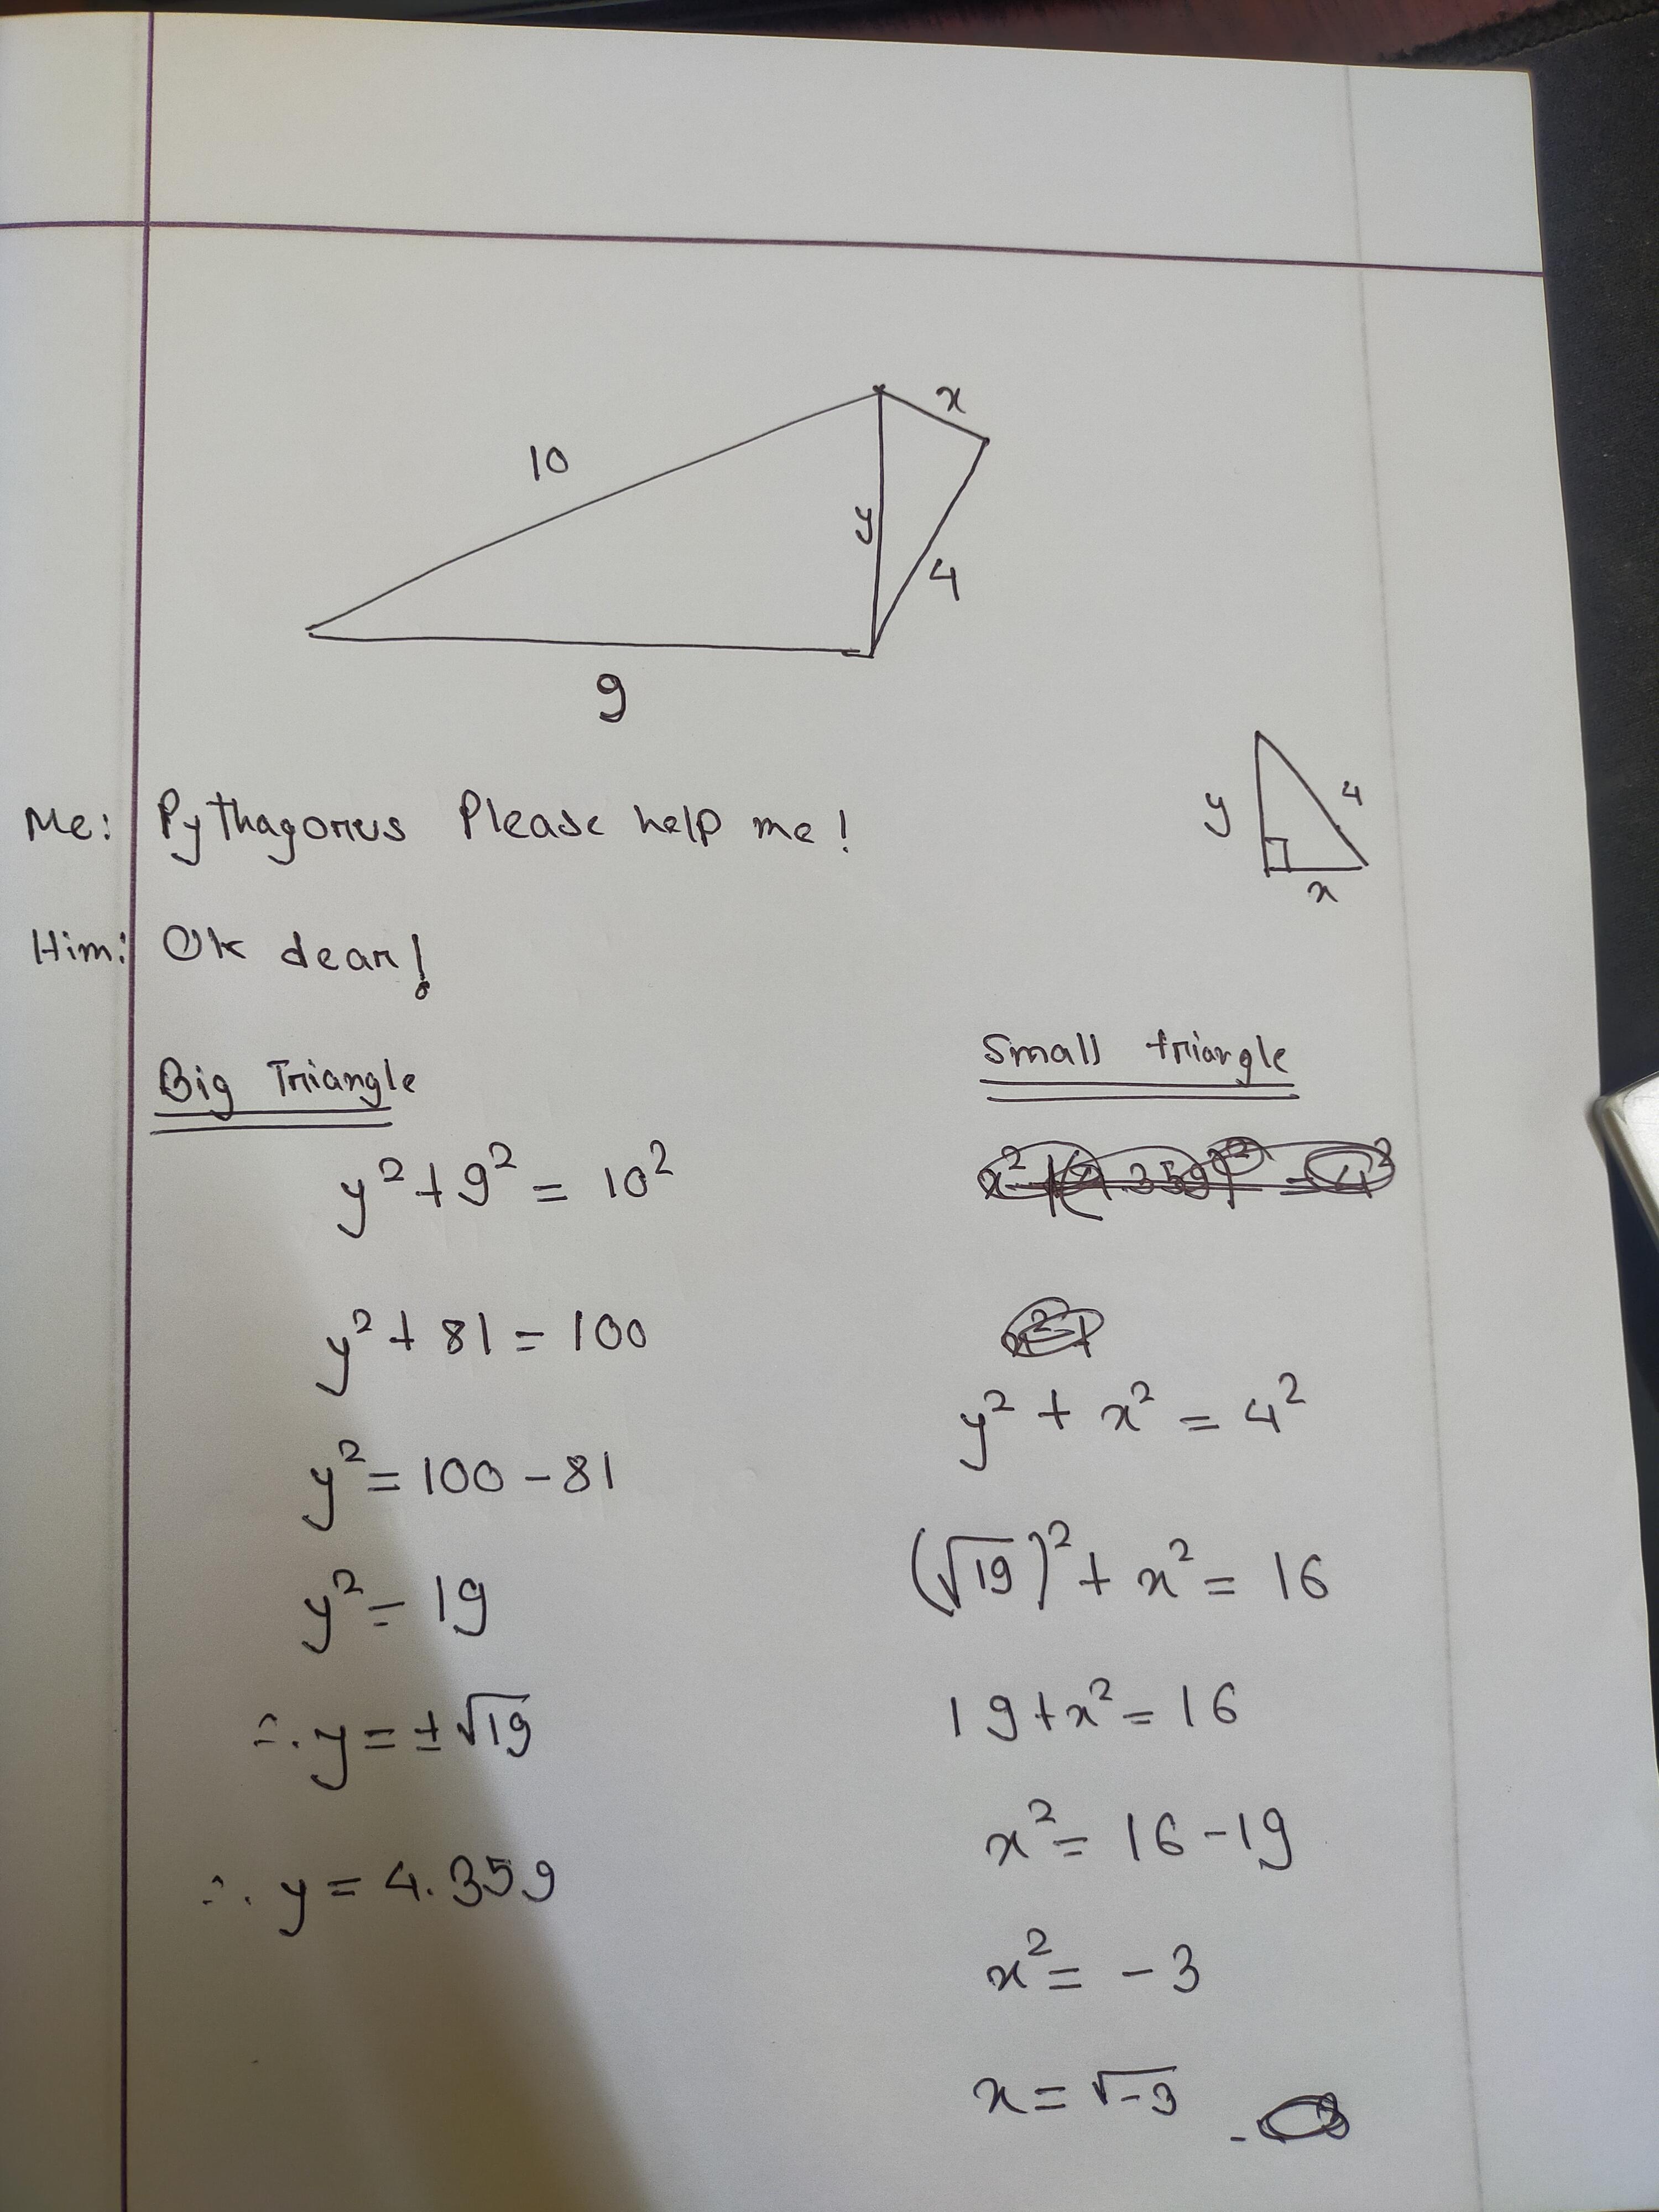 x
10
y
4
9
y
4
x
Me: Pythagorus Please help me!
Him: Ok dear!
Big Triangle
y² + 9² = 10²
y² + 81 = 100
y² = 100 - 81
y² = 19
∴ y = ± √19
∴ y = 4.359
Small triangle
y² + x² = 4²
(√19)² + x² = 16
19 + x² = 16
x² = 16 - 19
x² = -3
x = √-3